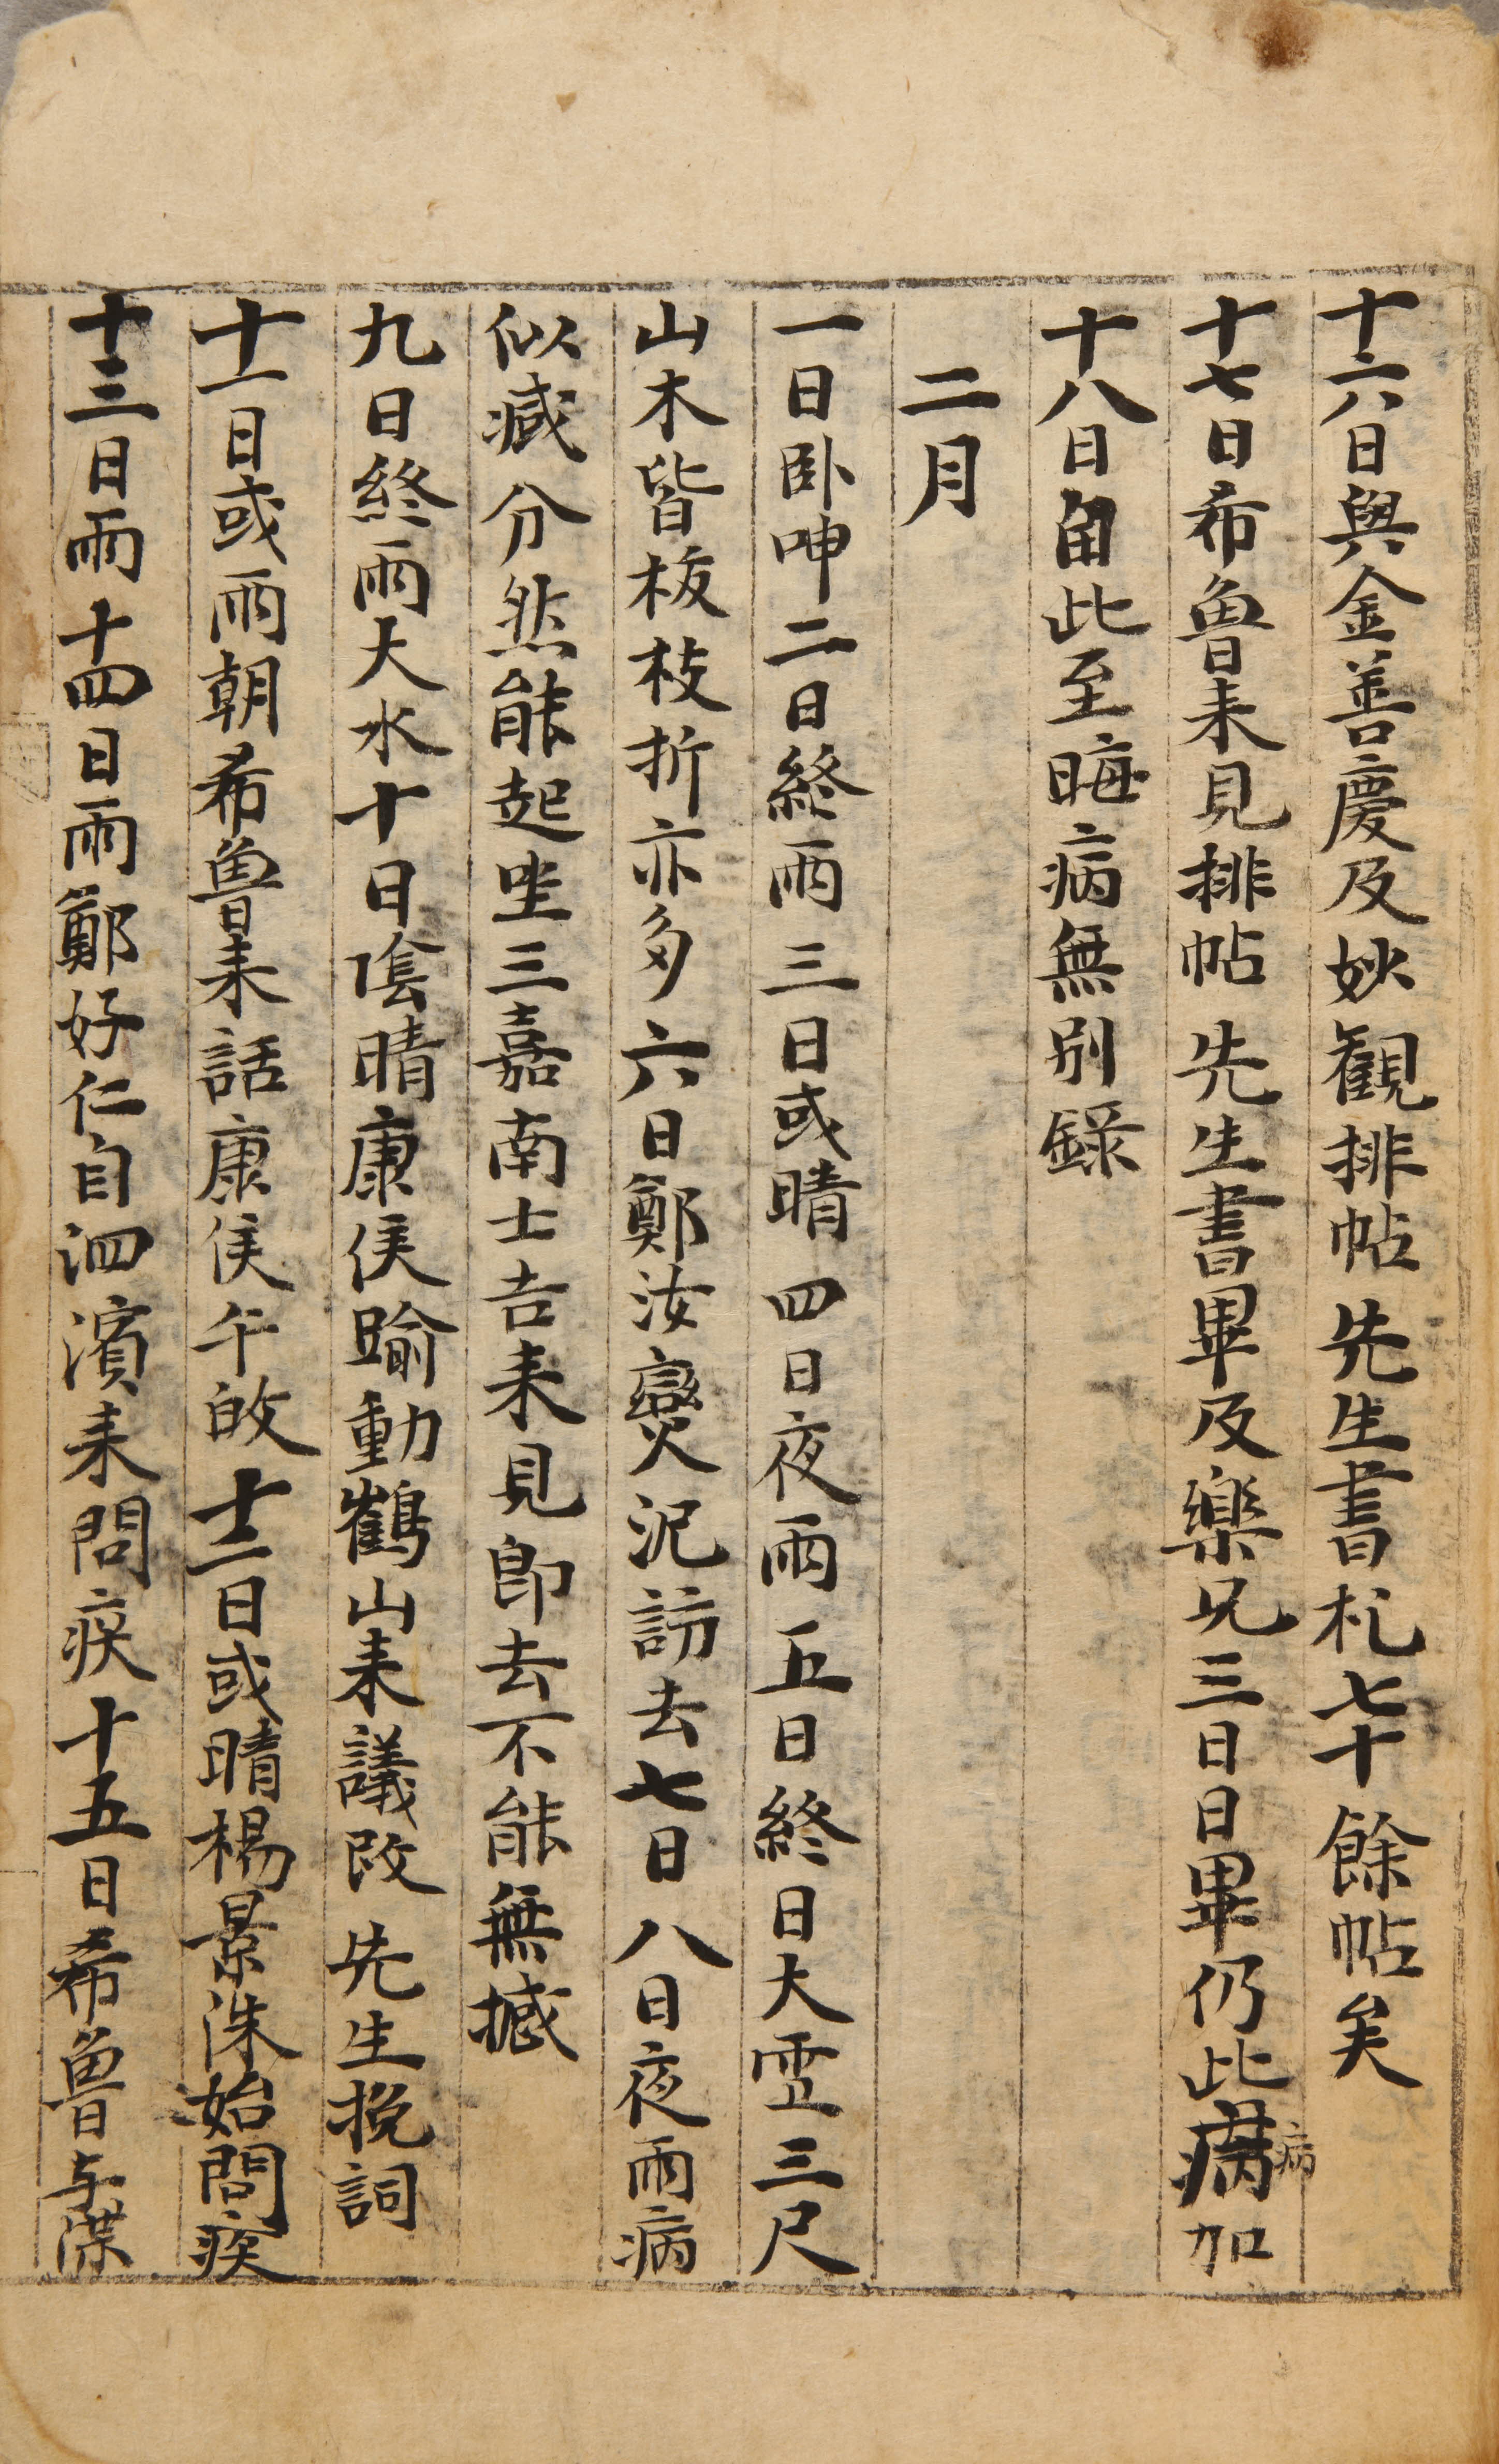 十六日與金善慶及妙觀排帖 先生書札七十餘帖矣
十七日希魯來見排帖 先生書畢及樂兄三日日畢仍此病加
病
十八日自此至晦病無別錄
二月
一日卧呻二日終雨三日或晴四日夜雨五日終日大雪三尺
山木皆板枝折亦多六日鄭汝燮汜訪去七日八日夜雨病
似减分然能起坐三嘉南士吉来見即去不能無撼
九日終雨大水十日陰晴康侯踰動鶴山来議改 先生挽詞
十一日或雨朝希魯来話康侯午皈十二日或晴楊景洙始問疾
十三日雨十四日雨鄭好仁自泗濱来問疾十五日希魯与渫